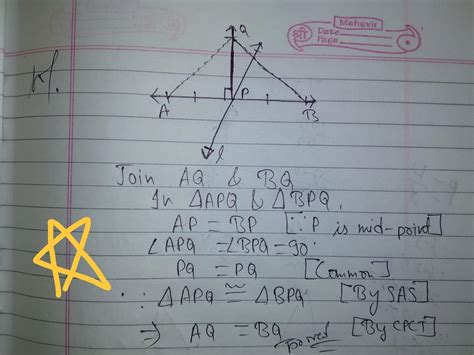 Mahavir
श्री
Date
Page
Q
A
P
B
l
Join AQ & BQ
In ΔAPQ & ΔBPQ,
AP = BP [∵ P is mid-point]
∠APQ = ∠BPQ = 90°
PQ = PQ [Common]
∴ ΔAPQ ≅ ΔBPQ [By SAS]
⇒ AQ = BQ [By CPCT]
proved